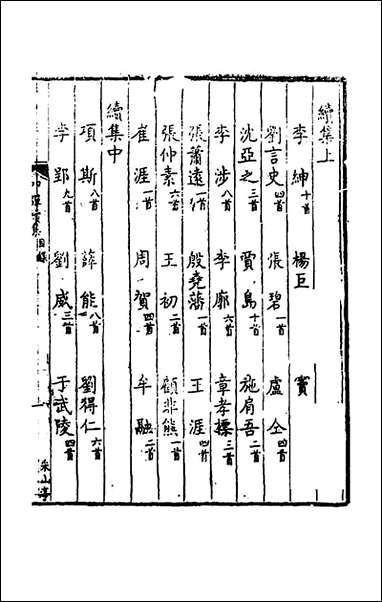 續集上
李紳十首 楊巨 竇
劉言史四首 張碧一首 盧仝四首
沈亞之三首 賈島十首 施肩吾二首
李涉八首 李廓六首 章孝標三首
張蕭遠一首 殷堯藩一首 王涯四首
張仲素六首 王初二首 顧非熊一首
崔涯一首 周賀四首 牟融二首
續集中
項斯八首 薛能八首 劉得仁六首
李郢九首 劉威三首 于武陵四首
集目錄
采山亭